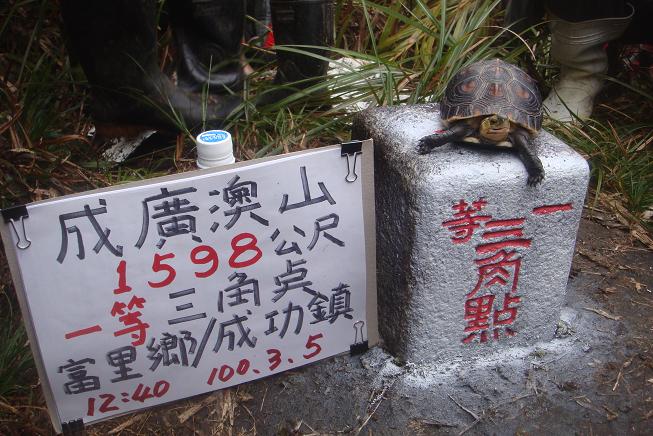 成廣澳山
1598公尺
一等三角点
富里鄉/成功鎮
12:40 100.3.5
一等
三角點